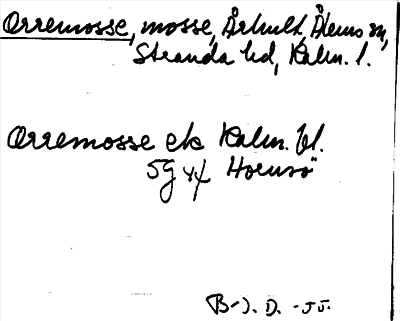 Orremosse, mosse, Århult, Ålems sn,
Stranda hd, Kalm. l.
Orremosse ek Kalm. bl.
5G Hornsö
B-). D. -55.